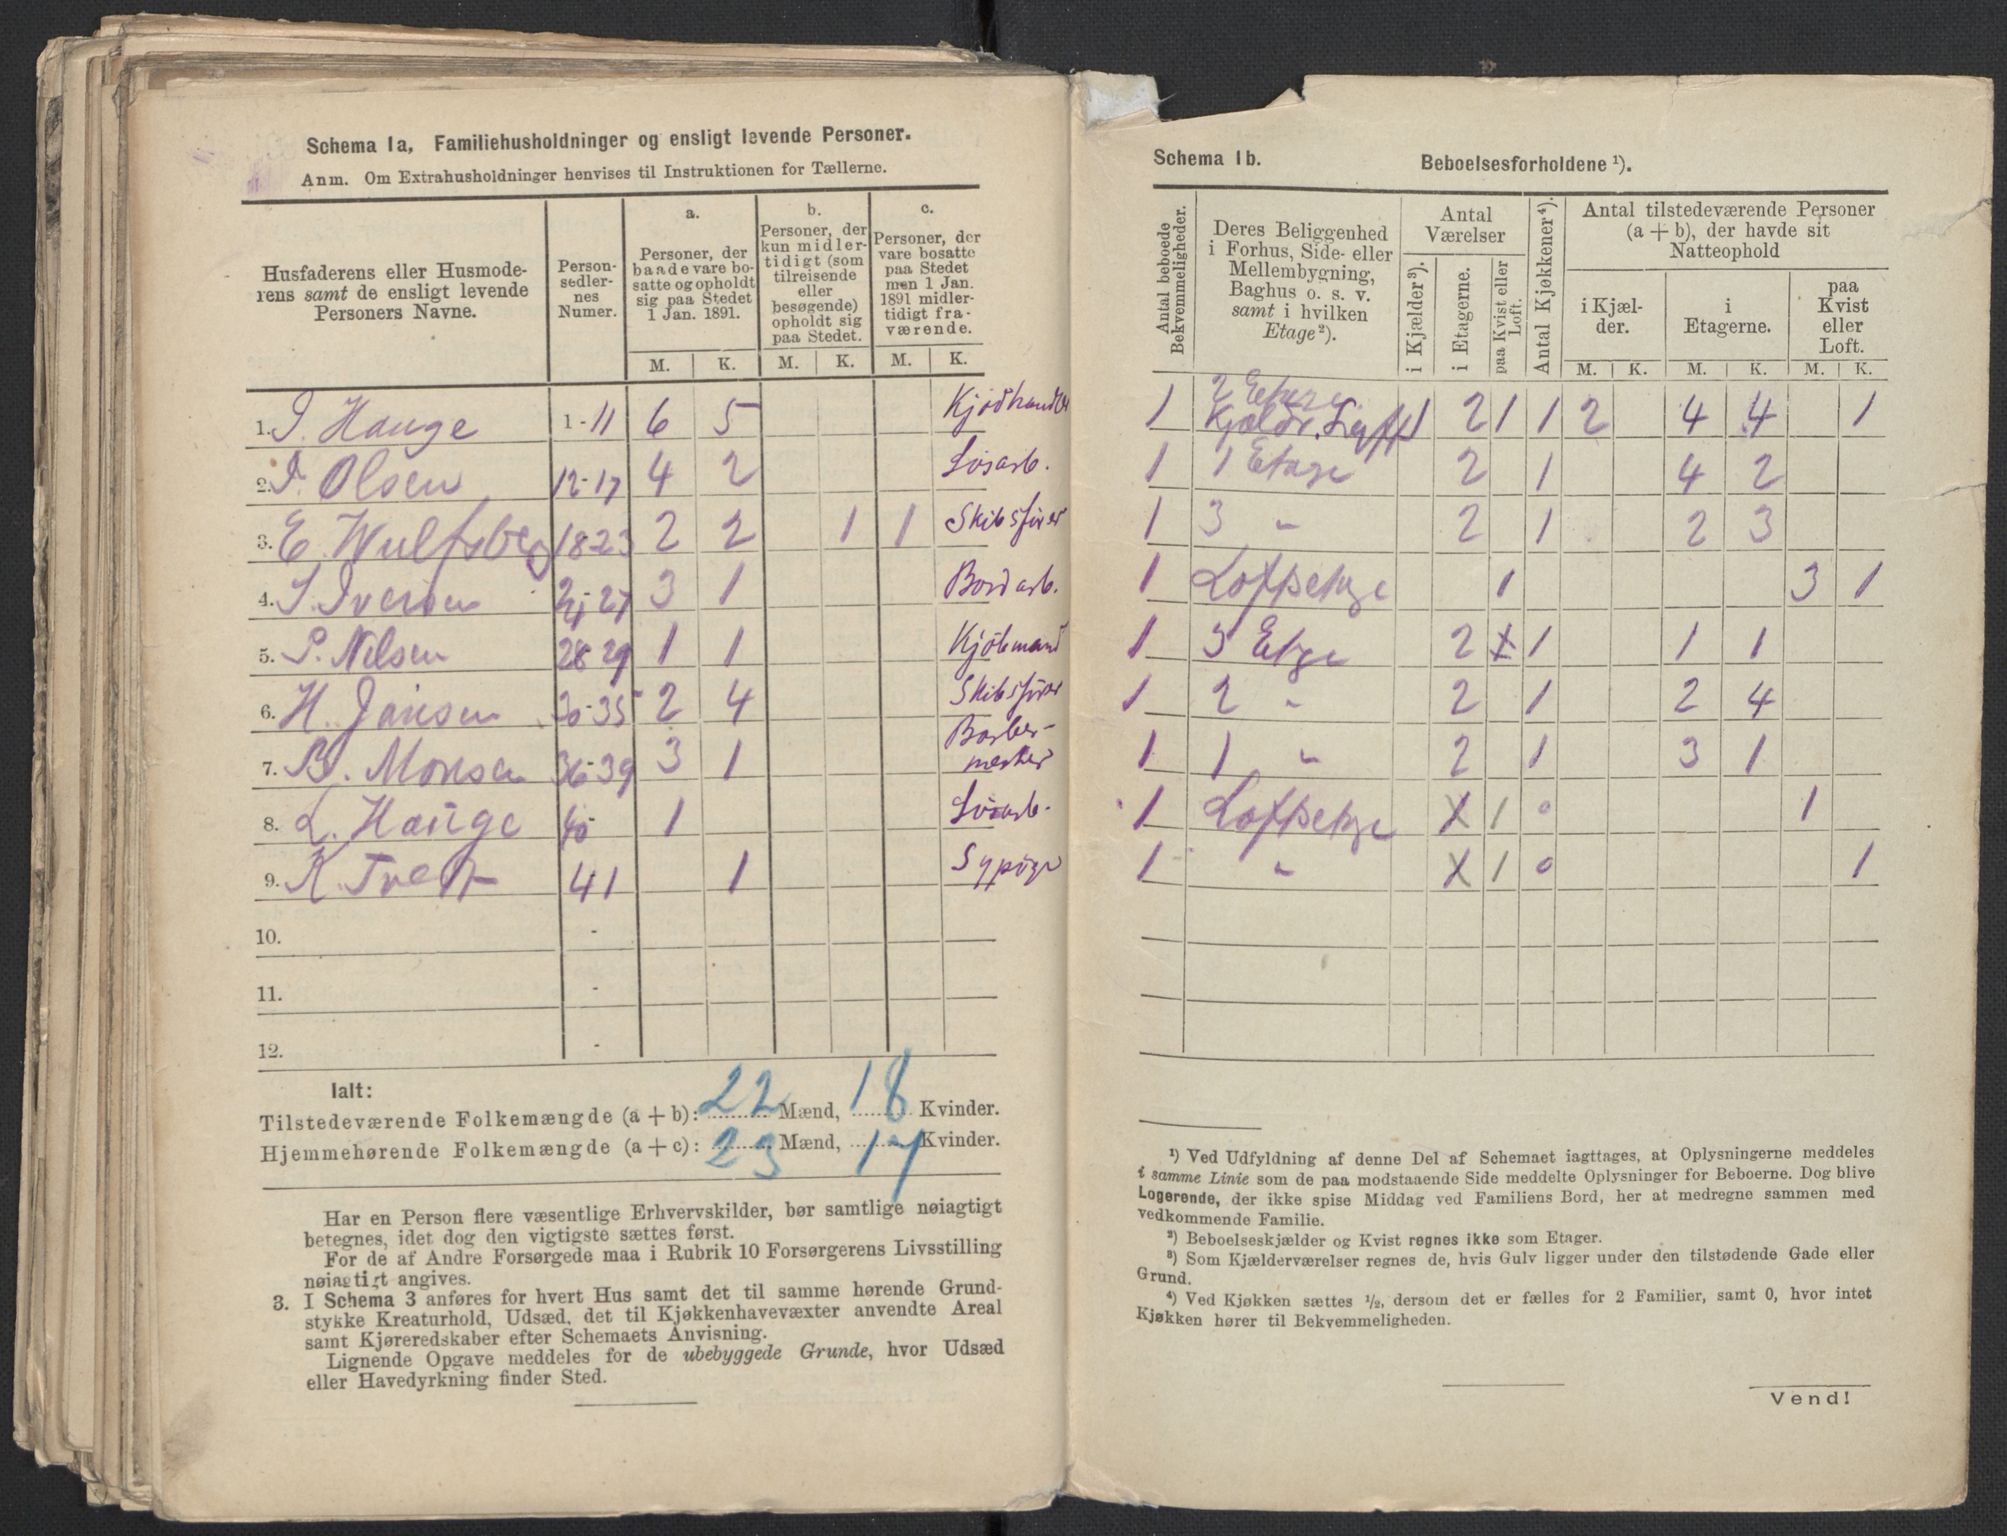 Schema 1a, Familiehusholdninger og ensligt levende Personer.
Anm. Om Extrahusholdninger henvises til Instruktionen for Tællerne.
Husfaderens eller Husmoderens samt de ensligt levende Personers Navne.
Personsedlernes Numer.
a. Personer, der baade vare bosatte og opholdt sig paa Stedet 1 Jan. 1891.
b. Personer, der kun midlertidigt (som tilreisende eller besøgende) opholdt sig paa Stedet.
c. Personer, der vare bosatte paa Stedet men 1 Jan. 1891 midlertidigt fraværende.
M. K. M. K. M. K.
1. I. Hauge 1-11 6 5 Kjødhandler
2. I. Olsen 12-17 4 2 Løsarb.
3. E. Wulfsberg 18 23 2 2 1 1 Skibsfører
4. I. Iversen 24-27 3 1 Bordarb.
5. P. Nilsen 28 29 1 1 Kjøbmand
6. H. Jansen 30-35 2 4 Skibsfører
7. B. Monsen 36-39 3 1 Barbermester
8. L. Hauge 40 1 Løsarb.
9. K. Tvedt 41 1 Sypige
10. -
11. -
12. -
Ialt:
Tilstedeværende Folkemængde (a + b): 22 Mænd, 18 Kvinder.
Hjemmehørende Folkemængde (a + c): 23 Mænd, 17 Kvinder.
Har en Person flere væsentlige Erhvervskilder, bør samtlige nøiagtigt
betegnes, idet dog den vigtigste sættes først.
For de af Andre Forsørgede maa i Rubrik 10 Forsørgerens Livsstilling
nøiagtigt angives.
3. I Schema 3 anføres for hvert Hus samt det til samme hørende Grund-
stykke Kreaturhold, Udsæd, det til Kjøkkenhavevæxter anvendte Areal
samt Kjøreredskaber efter Schemaets Anvisning.
Lignende Opgave meddeles for de ubebyggede Grunde, hvor Udsæd
eller Havedyrkning finder Sted.
Schema 1b. Beboelsesforholdene ¹).
Antal beboede Bekvemmeligheder.
Deres Beliggenhed i Forhus, Side- eller Mellembygning, Baghus o. s. v. samt i hvilken Etage²).
Antal Værelser
i Kjælder³).
i Etagerne.
paa Kvist eller Loft.
Antal Kjøkkener⁴).
Antal tilstedeværende Personer (a + b), der havde sit Natteophold
i Kjælder.
i Etagerne.
paa Kvist eller Loft.
M. K. M. K. M. K.
1 2 Etager Kjælder. Loft 1 2 1 1 2 4 4 1
1 1 Etage 2 1 4 2
1 3 " 2 1 2 3
1 Loftsetage 1 3 1
1 3 Etge 2 1 1 1 1
1 2 " 2 1 2 4
1 1 " 2 1 3 1
1 Loftsetage 1 1 0 1
1 " 1 1 0 1
¹) Ved Udfyldning af denne Del af Schemaet iagttages, at Oplysningerne meddeles
i samme Linie som de paa modstaaende Side meddelte Oplysninger for Beboerne. Dog blive
Logerende, der ikke spise Middag ved Familiens Bord, her at medregne sammen med
vedkommende Familie.
²) Beboelseskjælder og Kvist regnes ikke som Etager.
³) Som Kjælderværelser regnes de, hvis Gulv ligger under den tilstødende Gade eller
Grund.
⁴) Ved Kjøkken sættes ½, dersom det er fælles for 2 Familier, samt 0, hvor intet
Kjøkken hører til Bekvemmeligheden.
Vend!